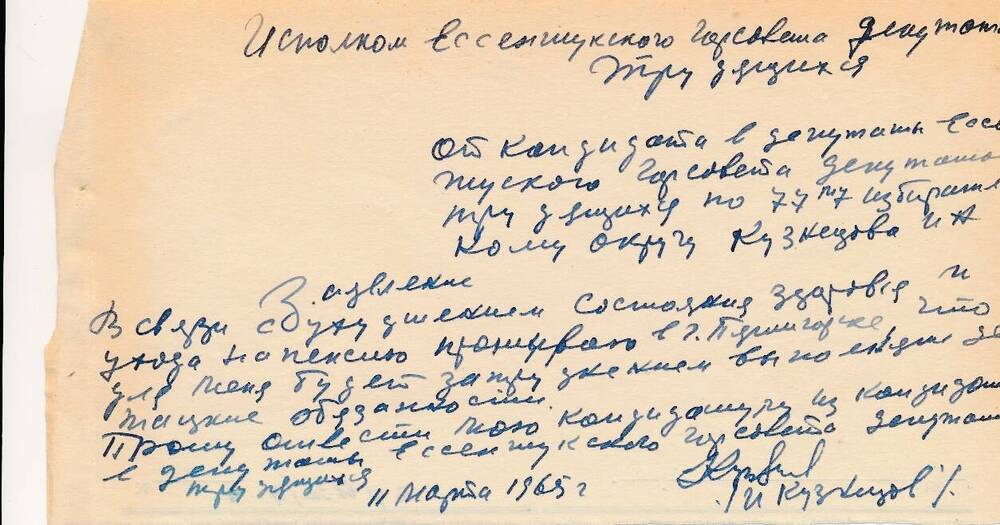 Исполком Ессентукского Горсовета депутато
трудящихся
От кандидата в депутаты Ессе
тукского Горсовета депутато
трудящихся по 77му избирате
кому округу Кузнецова И А
Заявление
В связи с ухудшением состояния здоровья и
ухода на пенсию проживаю в г. Пятигорске, что
для меня будет затруднением выполнять де
татские обязанности.
Прошу отвести мою кандидатуру из кандидато
в депутаты Ессентукского Горсовета депутато
трудящихся
11 марта 1965 г
/И Кузнецов/.